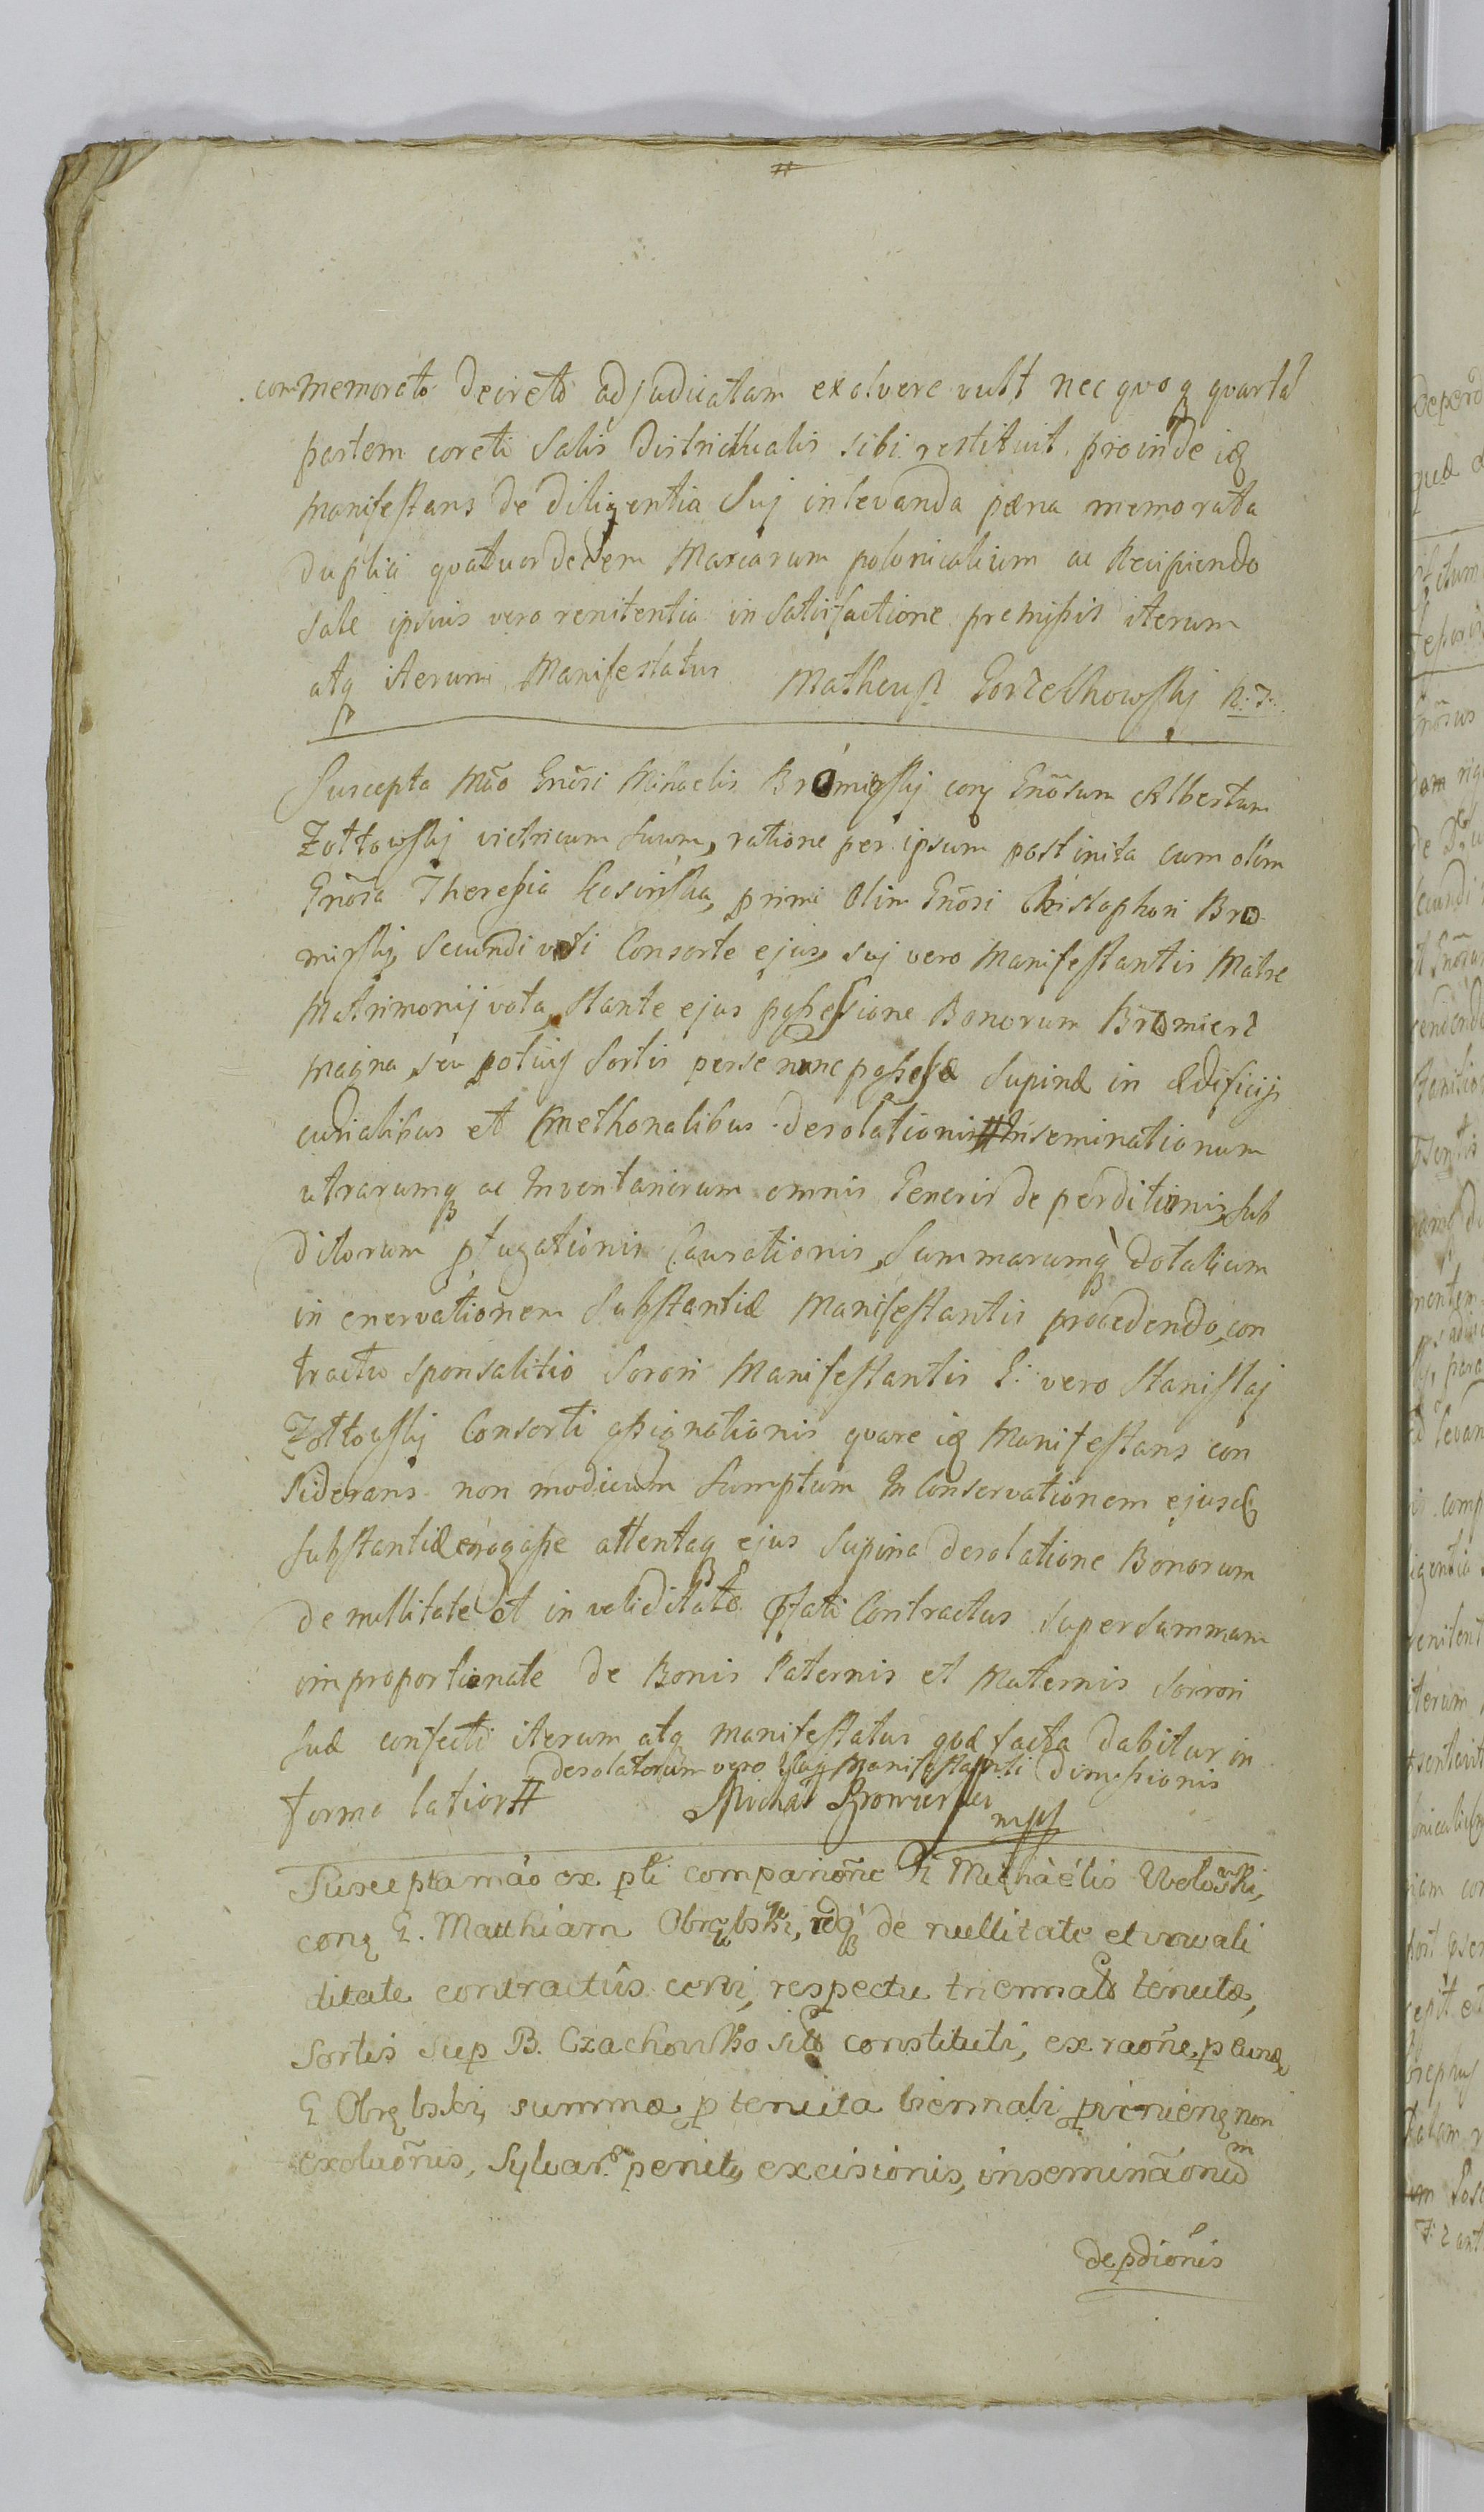 commemorato decreto adjudicatam exolvere vult nec quoq quartā
partem coreti Salis Districtualis sibi restituit, proinde iđ
Manifestans de diligentia suj in levanda pæna memorata
duplici quatuordecem Marcarum polonicalium ac Recipiendo
Sale ipsius vero renitentia in satisfactione premissis iterum
atq iterum Manifestatus Matheusz Gorzechowskj
Suscepta Mão Gnõsi Mihaelis Bromierskj con Gnõsum Albertum
Zołtowskj victricum suum, ratione per ipsum post inita cum olim
Gnõsa Theressia Kosinska, primi olim Gnõsi Christophori Bro
mirskj, secundi voti Consorte ejus, suj vero Manifestantis Matre
Matrimonij vota, stante ejus possessione Bonorum Bromierz
magna, seu potius Sortis per se nunc possessæ supinæ in ædificijs
curialibus et Cmethonalibus desolationis # Inseminationum
utrarumq ac Inventariorum omnis Generis de perditionis, sub
ditorum pfugationis Causationis, Summarumq dotalium
in enervationem substantiæ Manifestantis procedendo, con
tractu sponsalitio Sorori Manifestantis G: vero Stanislaj
Zołtowskj Consorti assignationis quare iđ Manifestans con
siderans non modicum sumptum In Conservationem ejusđ
substantiæ erogasse attentaq ejus supina desolatione Bonorum
de nullitate et in validitate Pfati Contractus super summam
improportionate de Bonis Paternis et Maternis Sorrori
suæ confecti iterum atq manifestatus quæ facta dabitur in
desolatorum vero Manifestanti dimissionis
forma latiori #
Michał Bromierski
mpp
Suscepta mão ex pti compariõne G Michaelis Wołowski,
con G. Matthiam Obrębski, idq de nullitate et invali
ditate contractûs certi, respectu triennalis tenutæ,
Sortis Sup B. Czachowko sitæ constituti, ex raõne p eund
G Obrębski, summæ p tenuta biennali pvenien non
exoluõnis, Sylvar penitꝫ excisionis, inseminãonum
depdiõnis